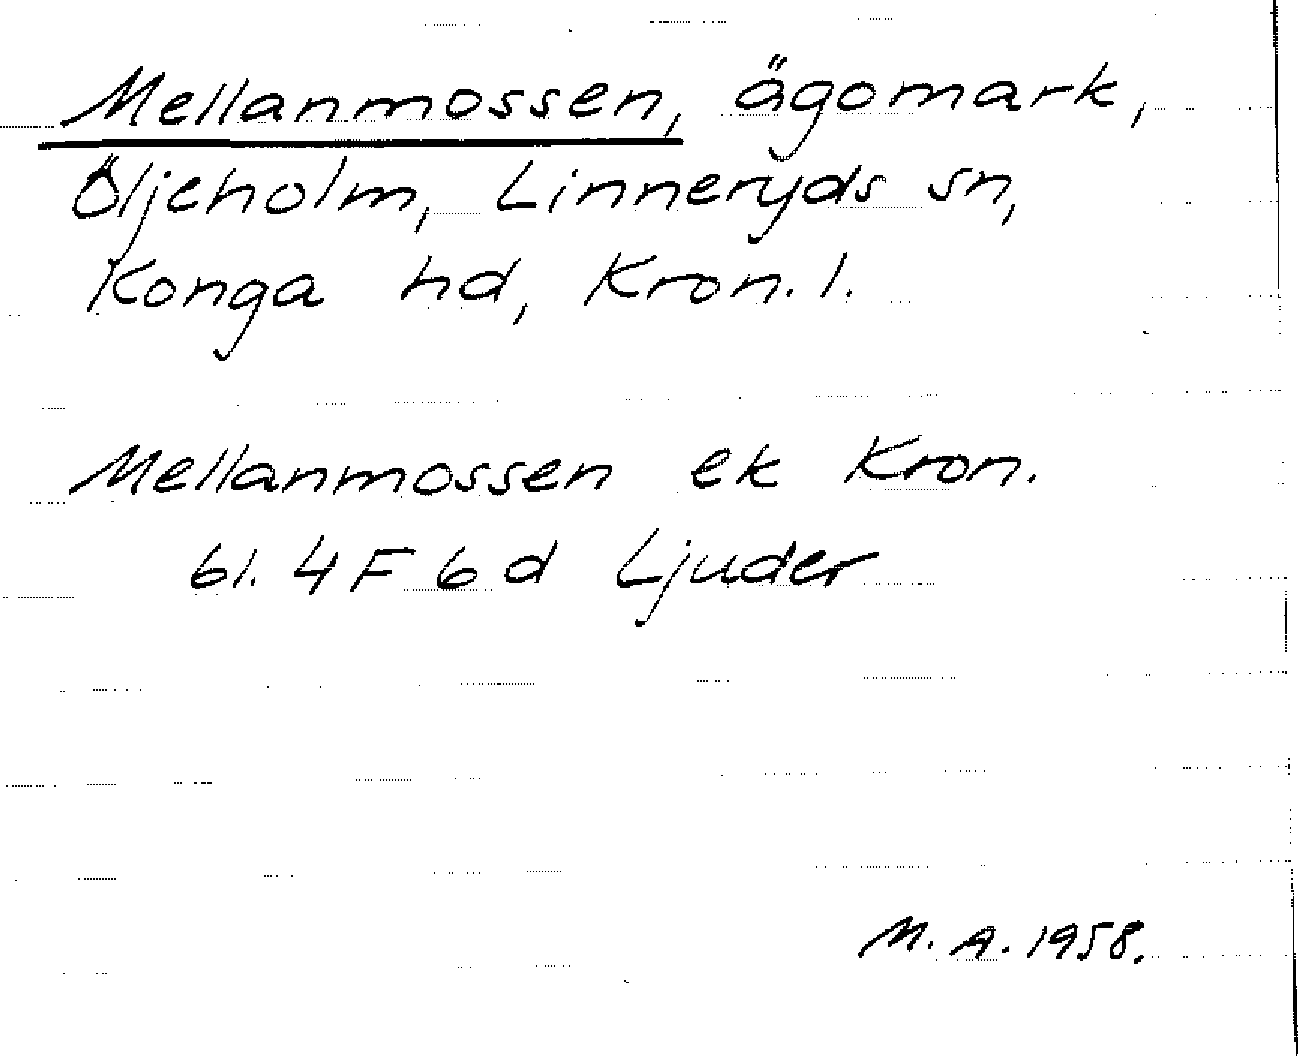 Mellanmossen, ägomark,
Öljeholm, Linneryds sn,
Konga hd, Kron. l.
Mellanmossen ek Kron.
bl. 4 F 6 d Ljuder
M. A. 1958.